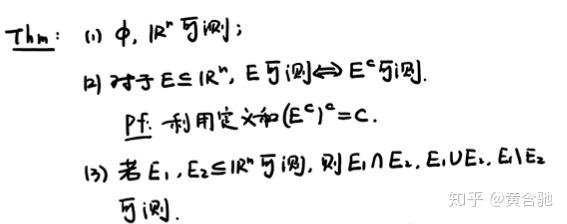 Thm: (1) ϕ, ℝⁿ 可测;
(2) 对于 E⊆ℝⁿ, E 可测⇔Eᶜ可测.
Pf: 利用定义和(Eᶜ)ᶜ=C.
(3) 若 E₁, E₂⊆ℝⁿ 可测, 则 E₁∩E₂, E₁∪E₂, E₁\E₂
可测.
知乎 @黄含驰